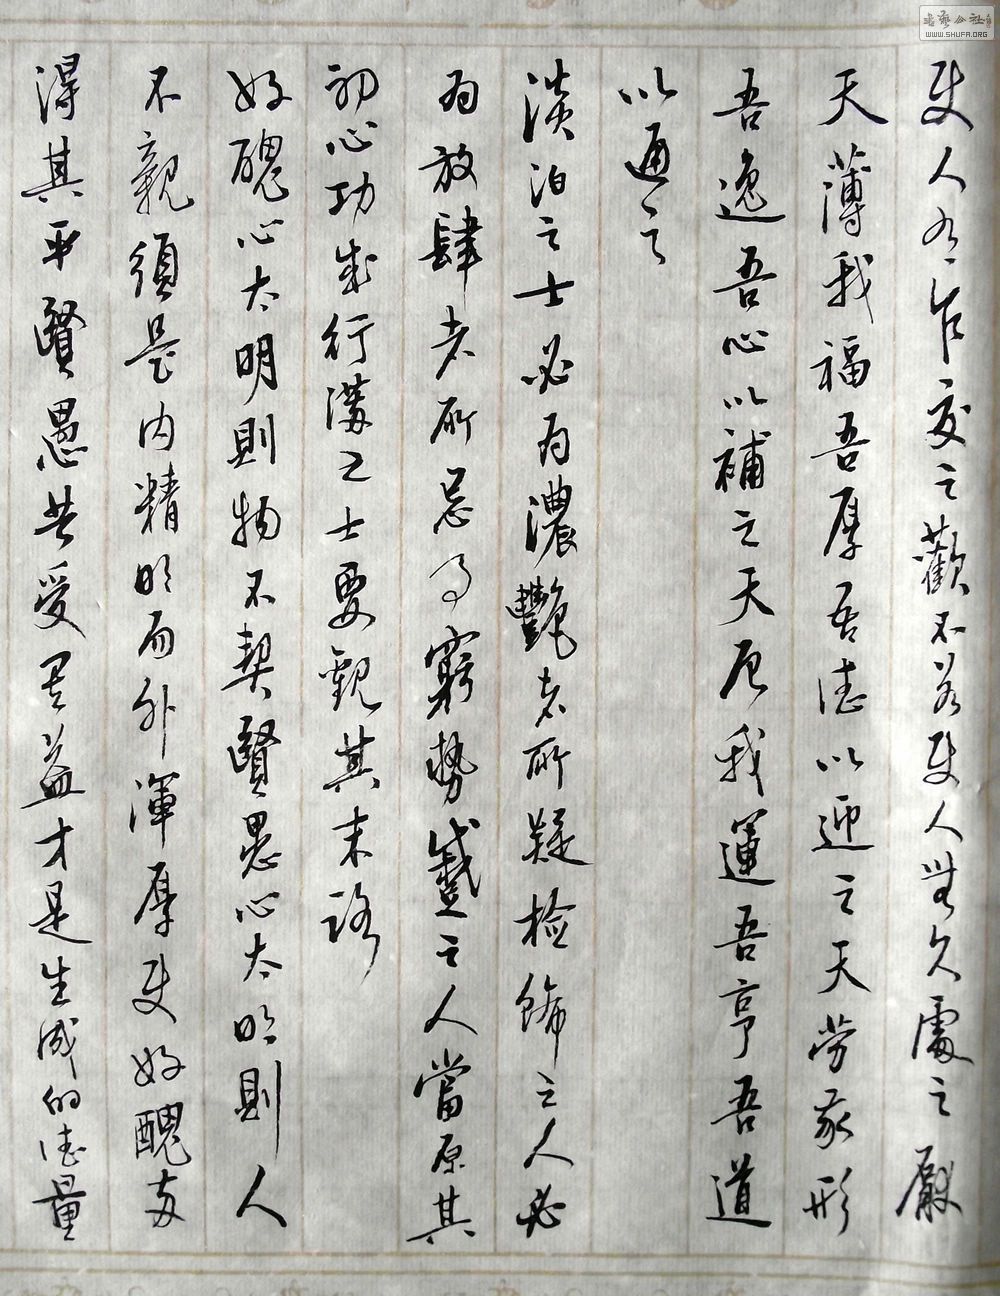 使人有乍交之歡不若使人無久處之厭
天薄我福吾厚吾德以迎之天勞我形
吾逸吾心以補之天厄我運吾亨吾道
以通之
淡泊之士必為濃艷者所疑檢飾之人必
為放肆者所忌事窮勢蹙之人當原其
初心功成行滿之士要觀其末路
好醜心太明則物不契賢愚心太明則人
不親須是内精明而外渾厚使好醜兩
得其平賢愚共受其益才是生成的德量
書藝公社
WWW.SHUFA.ORG